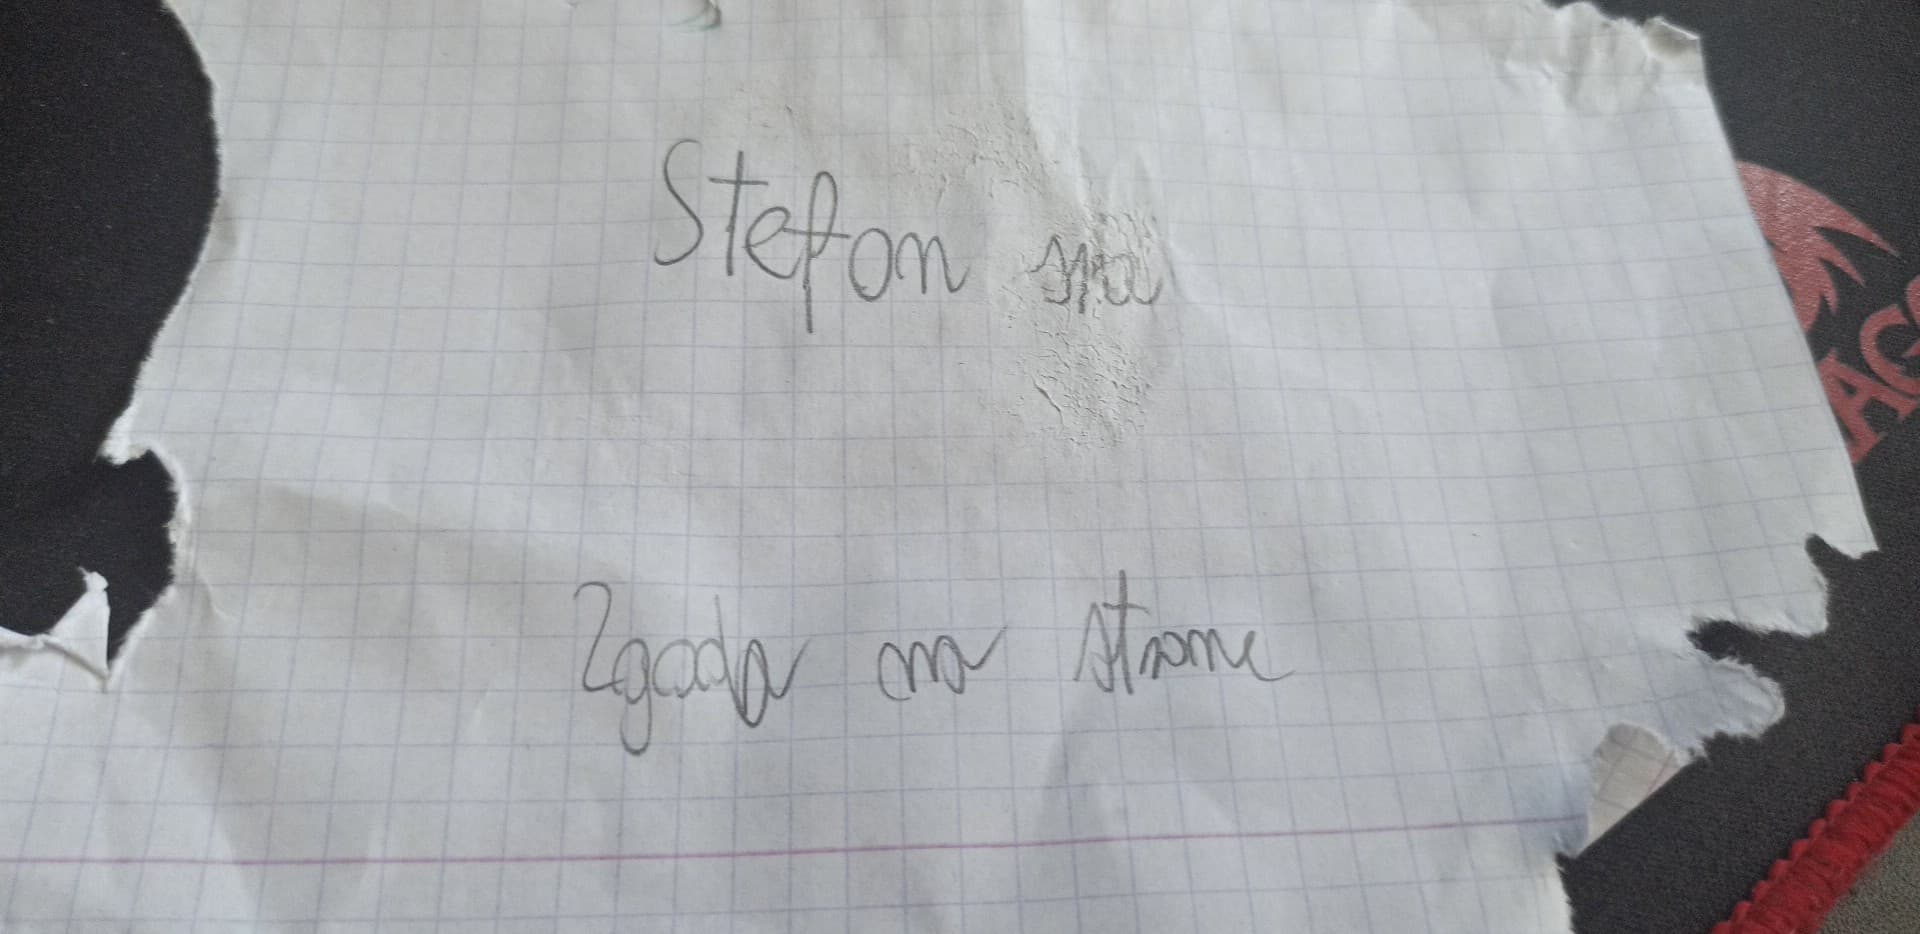 Stefan ma
Zgoda na strone
AG